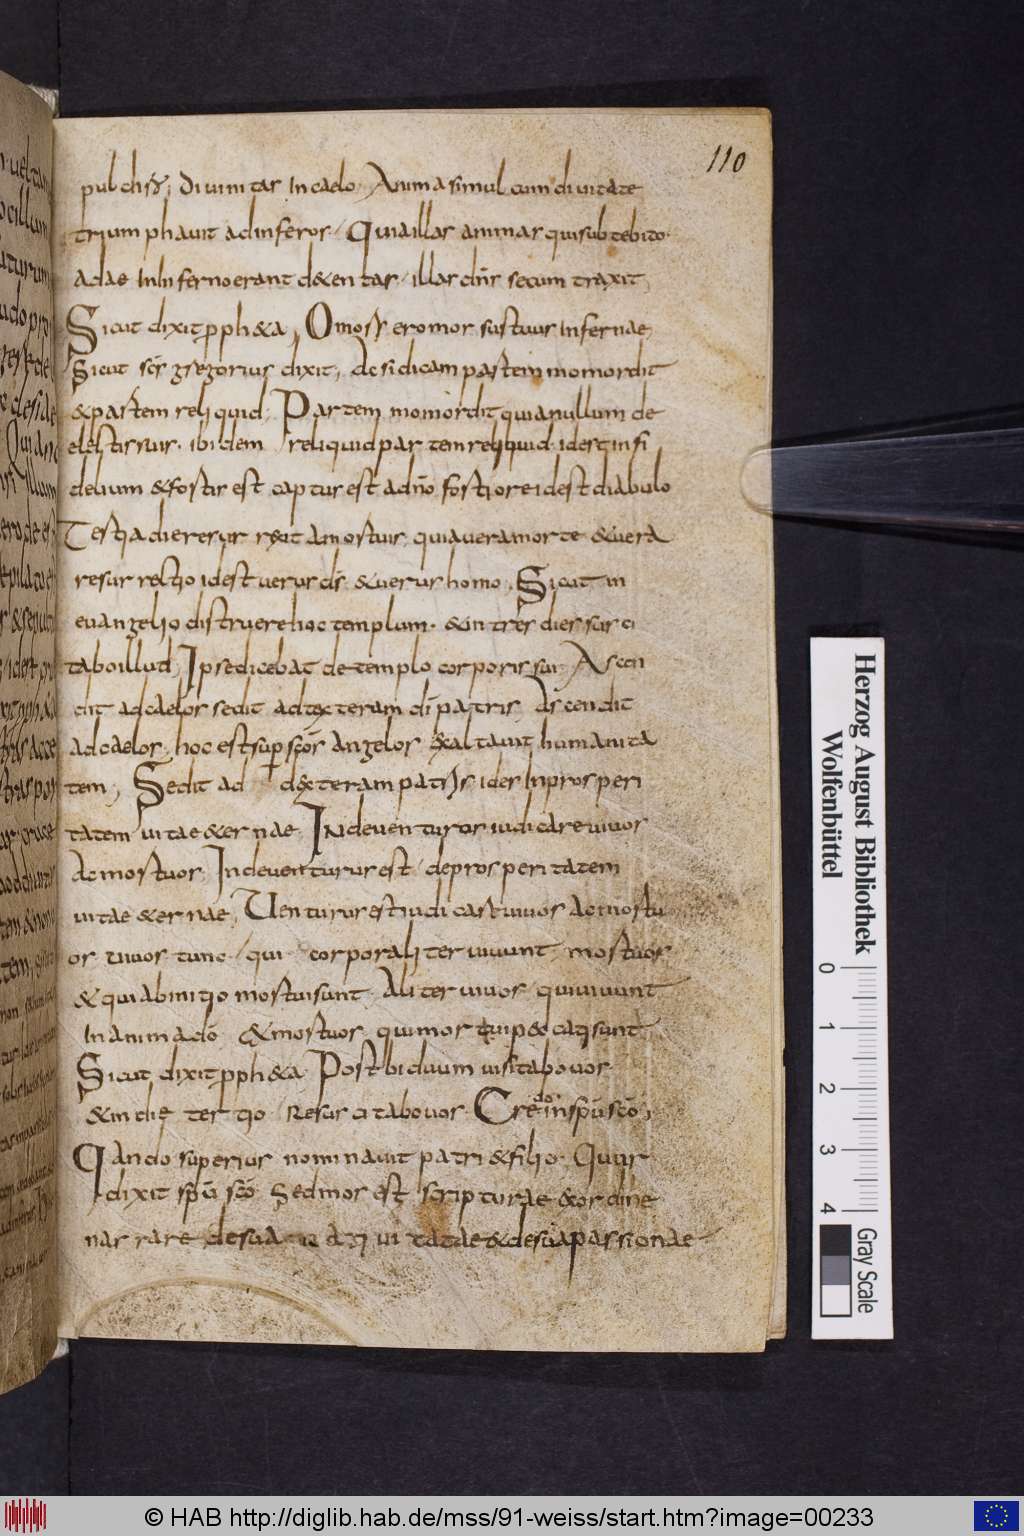 110
pulchro; Divinitas In caelo. Anima simul cum divitate
trium phavit ad inferos. Quia illas animas qui sub tebito
adae In Inferno erant detentas, illas dns secum traxit;
Sicut dixit ppheta; O mors ero mors tuus Inferne;
Sicut scs gregorius dixit, ac si dicam partem momordit
& partem reliquid; Partem momordit quia nullum de
electis suis ibi dem reliquid partem reliquid idest infi
delium & fortis est captus est ad no fortiore idest diabulo
Tertia die resur rexit a mortuis, quia vera morte & vera
resur rectio idest verus ds & verus homo. Sicut in
evangelio distruere hoc templum. & in tres dies sus ci
tabo illud; Ipse dicebat de templo corporis sui. Ascen
dit ad caelos sedit ad dexteram di patris, Ascendit
ad caelos, hoc est sup scos angelos exaltavit humanita
tem; Sedit ad dexteram patris ides In prosperi
tatem vitae & er nae. INde venturus iudicare vivos
ac mortuos. Inde venturus est, de prosperitatem
vitae & er nae, Venturus est iudicare vivos ac mortu
os vivos tunc, qui corporaliter vivunt, mortuos
& qui ab initio mortui sunt. Aliter vivos, qui vivunt
In anima do & mortuos qui mor tui peccatis sunt
Sicut dixit ppheta. Post biduum visitabo vos
& in die ter tio Resur citabo vos. Credo in spu sco;
Qando superius nominavit patri & filio. Quur
dixit spu sco. Sed mos est scripturae & ordine
narrare de sua nativitatae & de sua passionae
Herzog August Bibliothek
Wolfenbüttel
0 1 2 3 4
Gray Scale
© HAB http://diglib.hab.de/mss/91-weiss/start.htm?image=00233